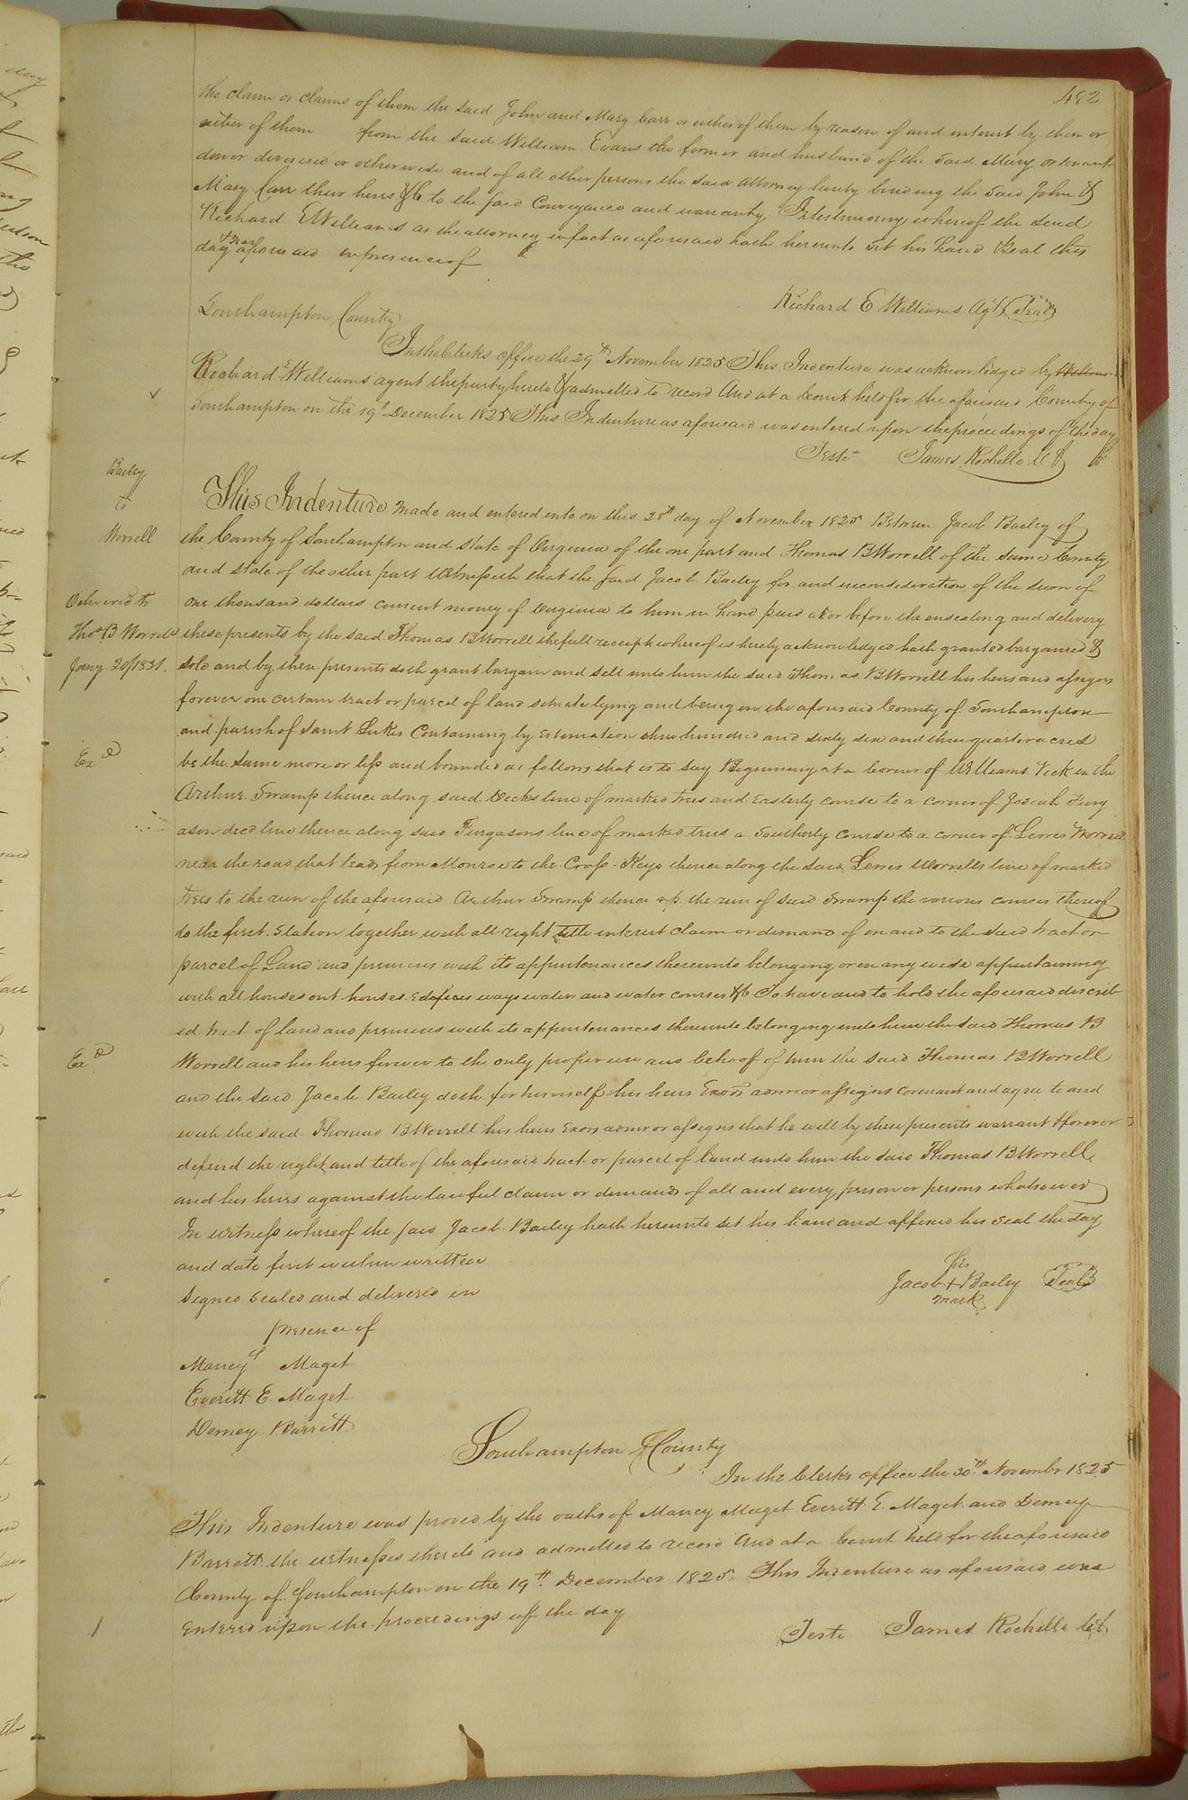 482
the claim or claims of them the said John and Mary Carr or either of them by reason of and interest by them or
either of them from the said William Evans the former and husband of the said Mary or
dower divorced or otherwise and of all other persons the said attorney hereby binding the said John &
Mary Carr their heirs &c to the said Conveyance and warranty. In testimony whereof the said
Richard E Williams as the attorney in fact as aforesaid hath hereunto set his hand & Seal this
day & year aforesaid in presence of
Richard E Williams Agt (Seal)
Southampton County
In the Clerks office the 29th November 1825 This Indenture was acknowledged by
Richard E Williams agent the party hereto & admitted to record And at a Court held for the aforesaid County of
Southampton on the 19th December 1825 This Indenture as aforesaid was entered upon the proceedings of the day
Teste James Rochelle C
Bailey
to
Worrell
Delivered to
Thos B Worrell
Jany 20/1831.
Exd
Exd
This Indenture made and entered into on this 28th day of November 1825 Between Jacob Bailey of
the County of Southampton and state of Virginia of the one part and Thomas B Worrell of the same County
and state of the other part Witnesseth that the said Jacob Bailey for and in consideration of the sum of
one thousand dollars current money of Virginia to him in hand paid at or before the ensealing and delivery
these presents by the said Thomas B Worrell the full receipt whereof is hereby acknowledged hath granted bargained &
sold and by these presents doth grant bargain and sell unto him the said Thomas B Worrell his heirs and assigns
forever one certain tract or parcel of land situate lying and being in the aforesaid County of Southampton
and parish of Saint Lukes Containing by Estimation three hundred and sixty six and three quarter acres
be the same more or less and bounded as follows that is to say Beginning at a corner of Williams Vick in the
Arthur Swamp thence along said Vicks line of marked trees and Easterly course to a corner of Josiah Furg
ason decd line thence along said Furgasons line of marked trees a Southerly course to a corner of Lewis Worrell
near the road that leads from Monroe to the Cross Keys thence along the said Lewis Worrells line of marked
trees to the run of the aforesaid Arthur Swamp thence up the run of said Swamp the various courses thereof
to the first Station together with all right title interest claim or demand of in and to the said tract or
parcel of Land and premises with its appurtenances thereunto belonging or in any wise appertaining
with all houses out houses Edifices ways waters and water courses &c To have and to hold the aforesaid describ
ed tract of land and premises with its appurtenances thereunto belonging unto him the said Thomas B
Worrell and his heirs forever to the only proper use and behoof of him the said Thomas B Worrell
and the said Jacob Bailey doth for himself his heirs Exors admr or assigns covenant and agree to and
with the said Thomas B Worrell his heirs Exors admr or assigns that he will by these presents warrant & forever
defend the right and title of the aforesaid tract or parcel of land unto him the said Thomas B Worrell
and his heirs against the lawful claim or demands of all and every person or persons whatsoever
In witness whereof the said Jacob Bailey hath hereunto set his hand and affixed his seal the day
and date first within written
Signed Sealed and delivered in
presence of
his
Jacob + Bailey (Seal)
mark
Marcy Maget
Everitt E. Maget
Demcy Barrett
Southampton County
In the Clerks office the 30th November 1825
This Indenture was proved by the oaths of Mancy Maget Everitt E. Maget and Demcy
Barrett the witnesses thereto and admitted to record And at a Court held for the aforesaid
County of Southampton on the 19th December 1825. This Indenture as aforesaid was
entered upon the proceedings of the day
Teste James Rochelle Clk